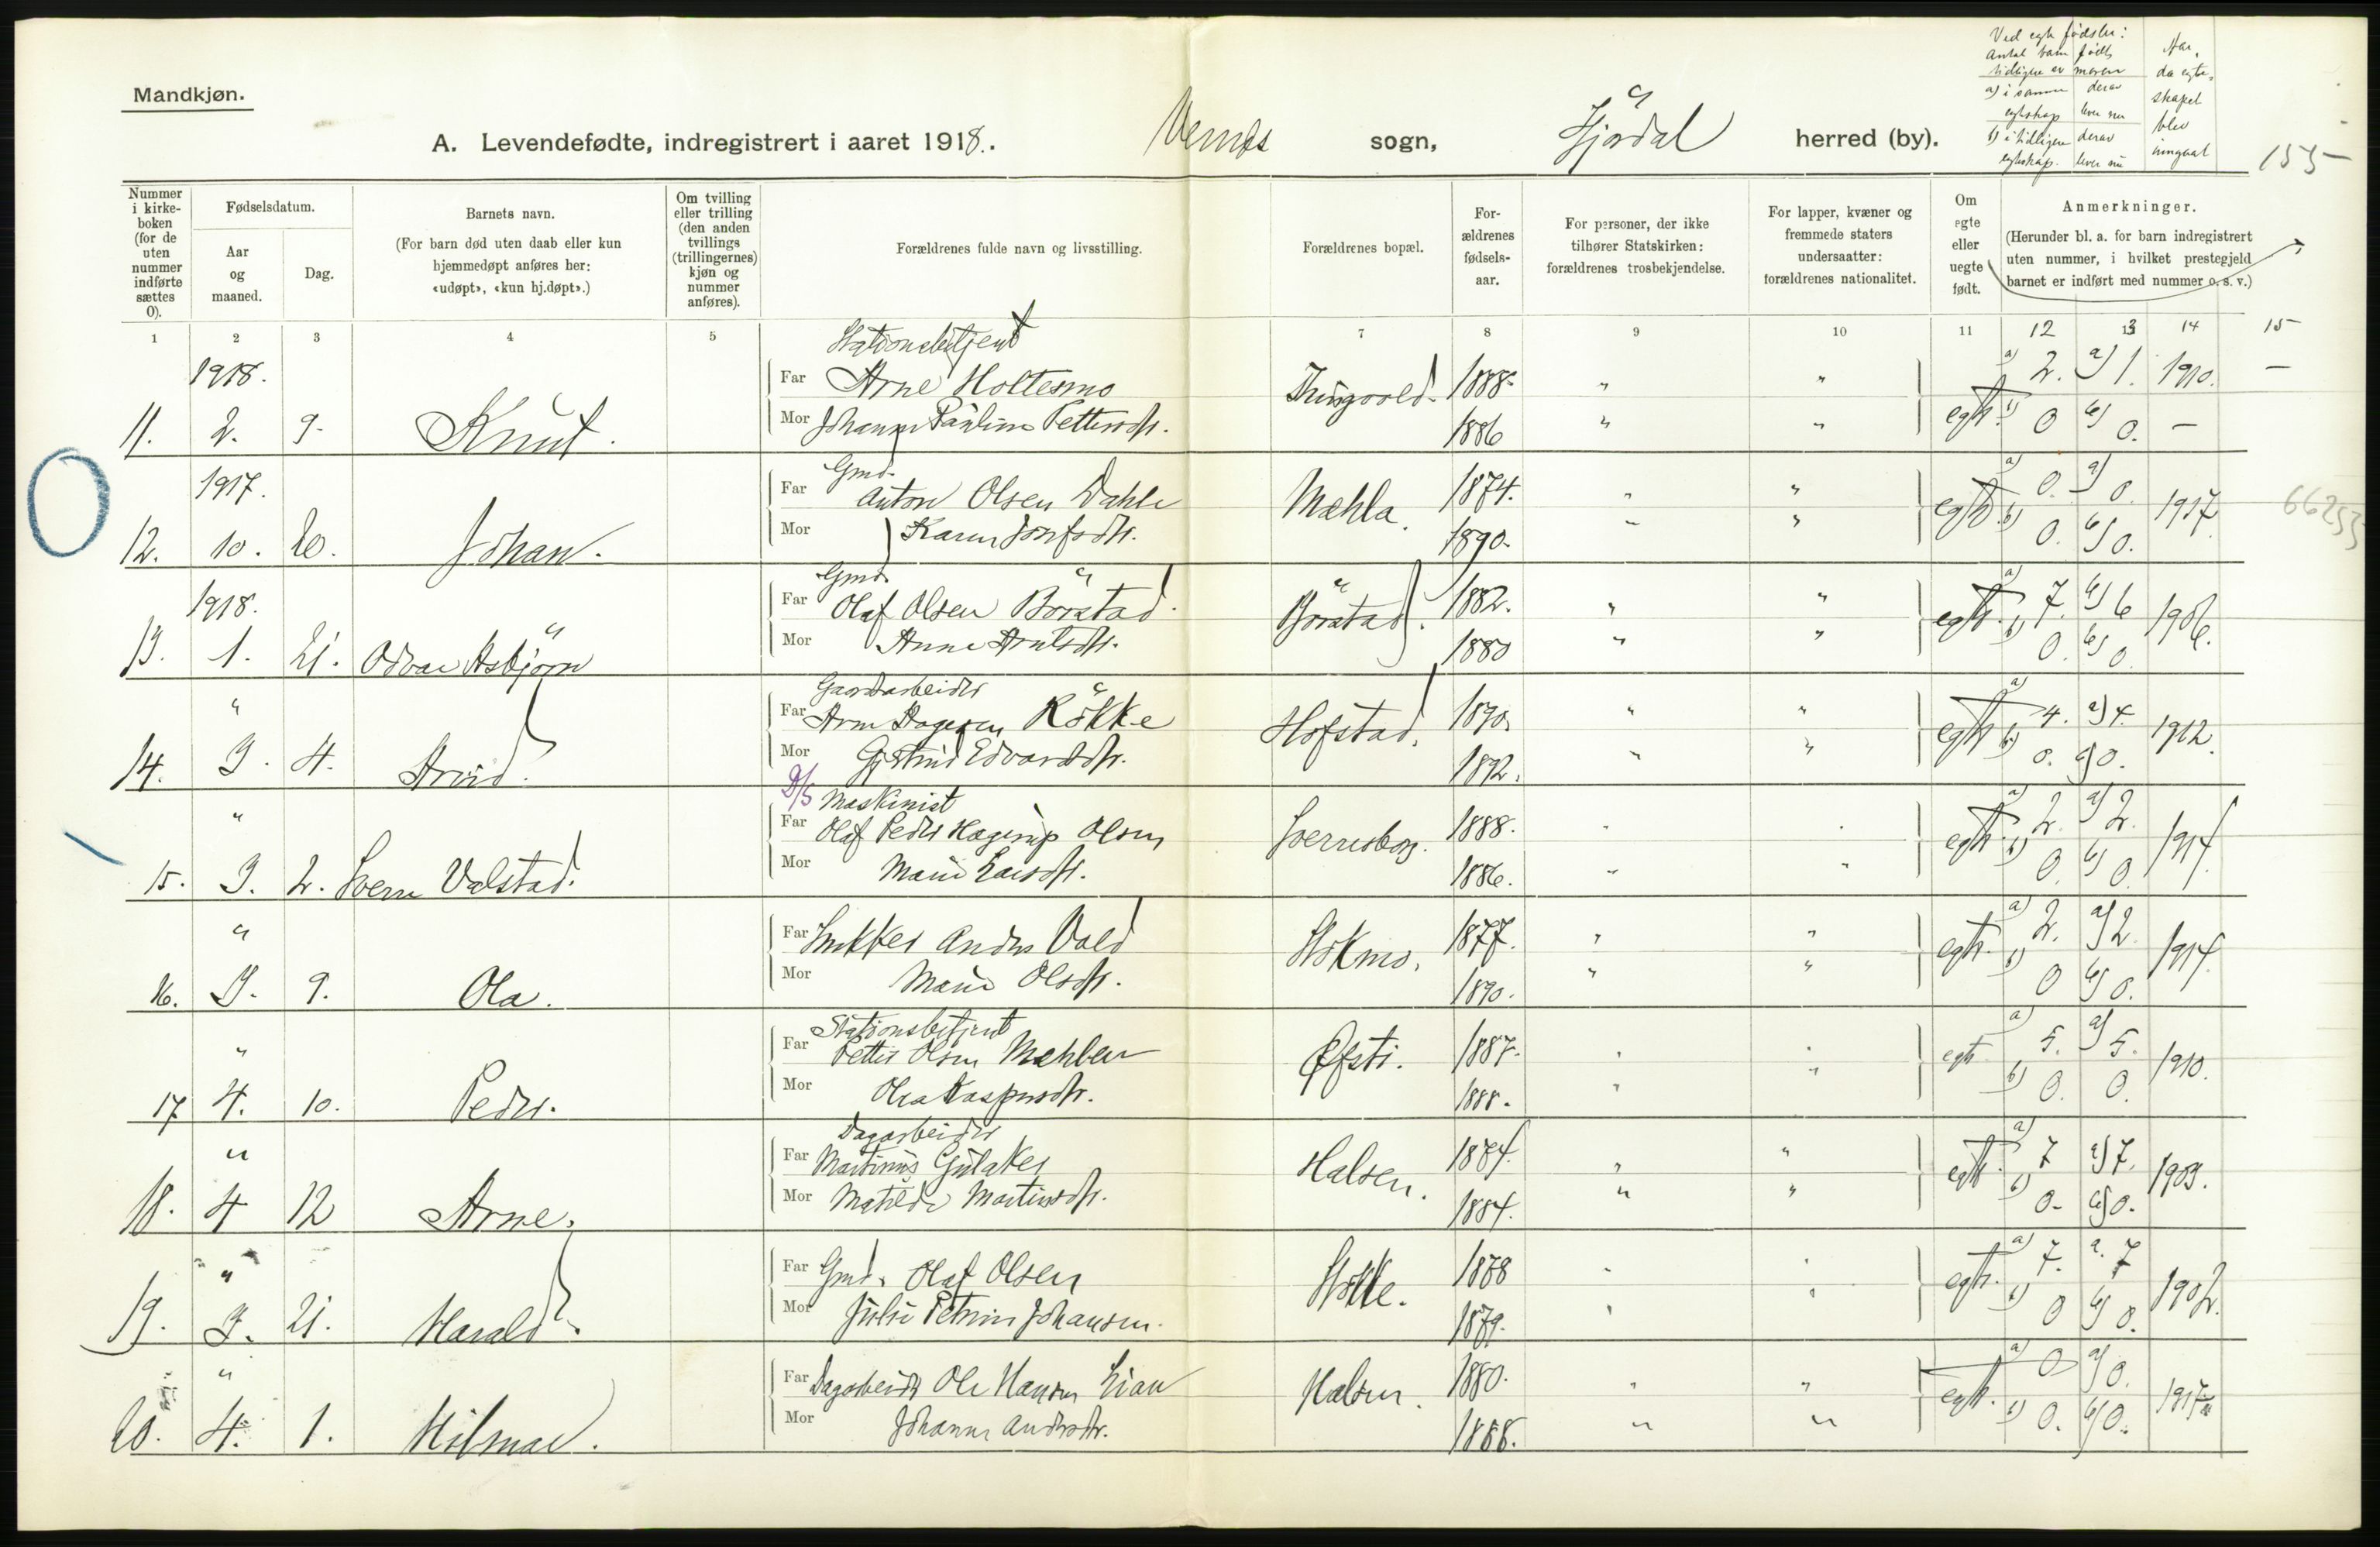 Mandkjøn.
A. Levendefødte, indregistrert i aaret 1918.
Vernes sogn,
Stjørdal herred (by).
Ved egte fødsler:
Antal barn født
tidligere av moren
a) i samme egteskap
derav lever nu
b) i tidligere egteskap.
derav lever nu
Aar, da egteskapet blev inngaat
155-
Nummer i kirkeboken (for de uten nummer indførte sættes 0).
Fødselsdatum.
Aar og maaned.
Dag.
Barnets navn.
(For barn død uten daab eller kun hjemmedøpt anføres her: «udøpt», «kun hj.døpt».)
Om tvilling eller trilling (den anden tvillings (trillingernes) kjøn og nummer anføres).
Forældrenes fulde navn og livsstilling.
Forældrenes bopæl.
Forældrenes fødselsaar.
For personer, der ikke tilhører Statskirken: forældrenes trosbekjendelse.
For lapper, kvæner og fremmede staters undersaatter: forældrenes nationalitet.
Om egte eller uegte født.
Anmerkninger.
(Herunder bl. a. for barn indregistrert uten nummer, i hvilket prestegjeld barnet er indført med nummer o. s. v.)
1 2 3 4 5 7 8 9 10 11 12 13 14 15
1918.
Stationsbetjent
Far Arne Holtesmo 1888. " " a) 2. a) 1. 1910. —
11. 2. 9. Knut. Mor Johanne Pauline Pettersdtr. 1886 " " egte. b) 0 b) 0. —
1917.
Gmd.
Far Anton Olsen Dahle Mæhla. 1874. " " a) 0. a) 0. 1917
12. 10. 20. Johan. Mor Karen 1890. " " egte b) 0. b) 0.
66253
1918.
Gmd.
Far Olaf Olsen Börstad. Börstad. 1882. " " a) 7. a) 6 1906.
13. 1. 21. Odvar Asbjörn Mor Anna Arntsdtr. 1880 " " egte. b) 0. b) 0.
" Gaardarbeider
Far Arne Rökke Hofstad. 1890. " " a) 4. a) 4. 1912.
14. 3. 4. Arvid. Mor Gjertrud Edvardsdtr. 1892. " " egte b) 0. b) 0.
D/S Maskinist
" Far Olaf Peder Hagerup Olsen Sverresborg. 1888. " " a) 2. a) 2. 1914.
15. 3. 2. Sverre Valstad. Mor Marie Larsdtr. 1886. " " egte. b) 0. b) 0.
" Far Snekker Anders Vold Stokmo. 1877. " " a) 2. a) 2. 1914.
16. 3. 9. Ola. Mor Marie Olsdtr. 1890. " " egte. b) 0 b) 0.
Stationsbetjent
" Far Petter Olsen Mæhlen Øfsti. 1887. " " a) 5. a) 5. 1910.
17 4. 10. Peder. Mor Olea Kaspersdtr. 1888. " " egte b) 0. 0.
Dagarbeider
" Far Martinus Gulaker Halsen. 1884. " " a) 7 a) 7. 1903.
18. 4 12 Arne. Mor Matilde Martinsdtr. 1884. " " egte b) 0. b) 0.
" Far Gmd. Olaf Olsen Stokke. 1878 " " a) 7. a. 7 1902.
19. 3. 21. Harald. Mor Julie Petrine Johansen. 1879. " " egte. b) 0 b) 0.
" Far Dagarbeider Ole Hansen Lian Halsen. 1880. " " a) 0 a) 0. 1917
20. 4. 1. Hilmar. Mor Johanne Andersdtr. 1888. " " egte. b) 0. b) 0.